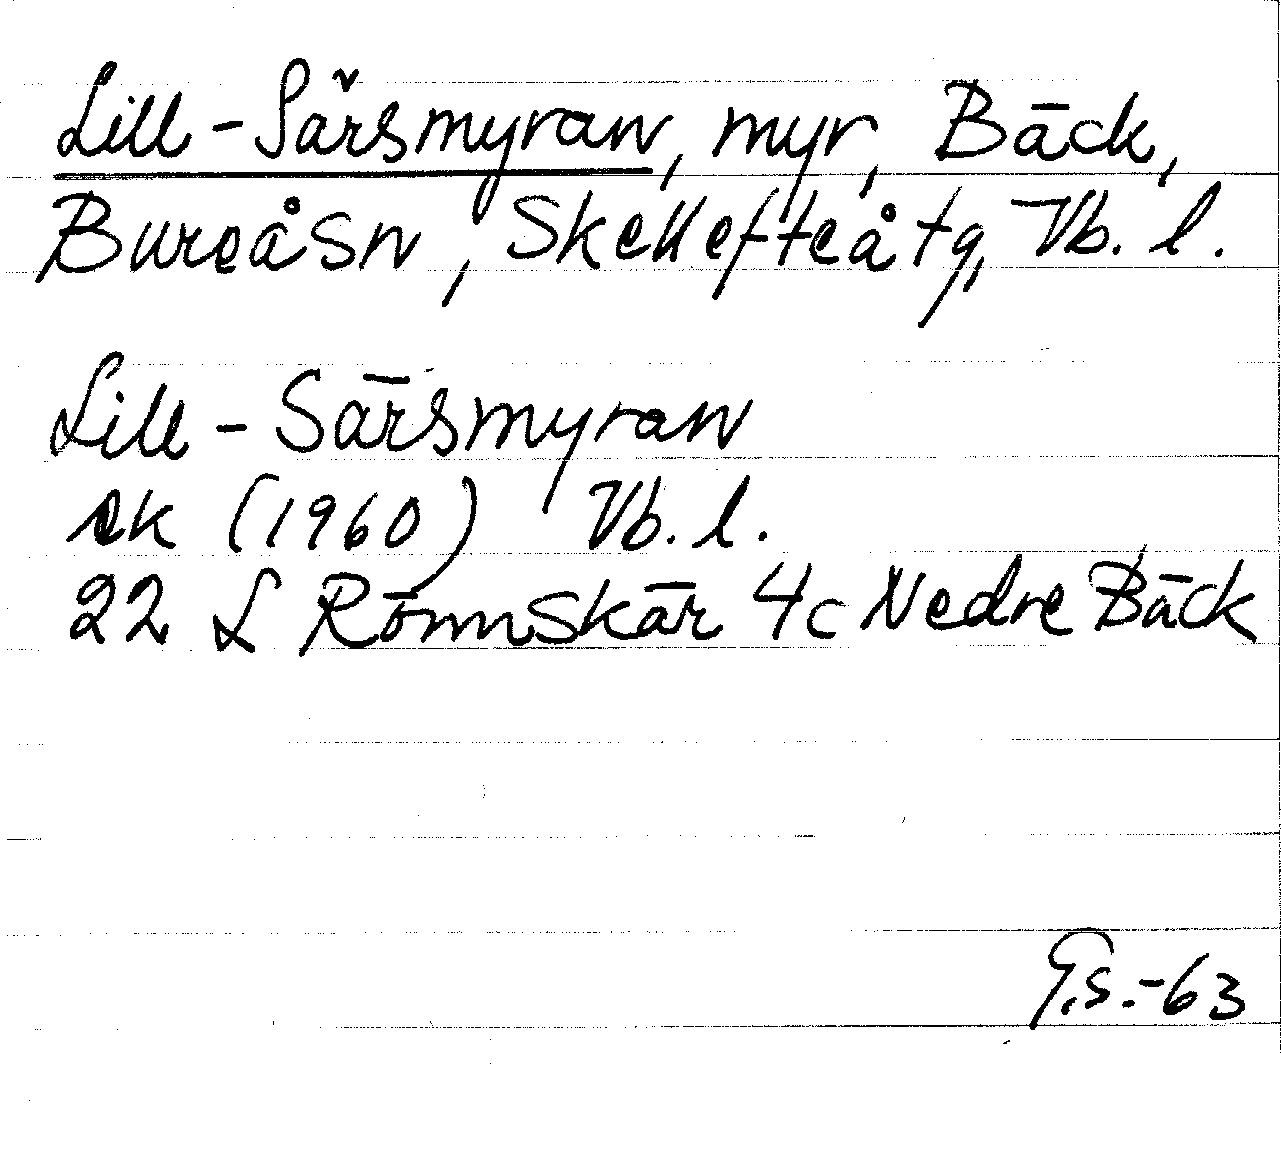 Lill-Särsmyran, myr, Bäck,
Bureå sn, Skellefteå tg, Vb. l.
Lill-Särsmyran
ek (1960) Vb. l.
22 L Rönnskär 4c Nedre Bäck
G.S.-63